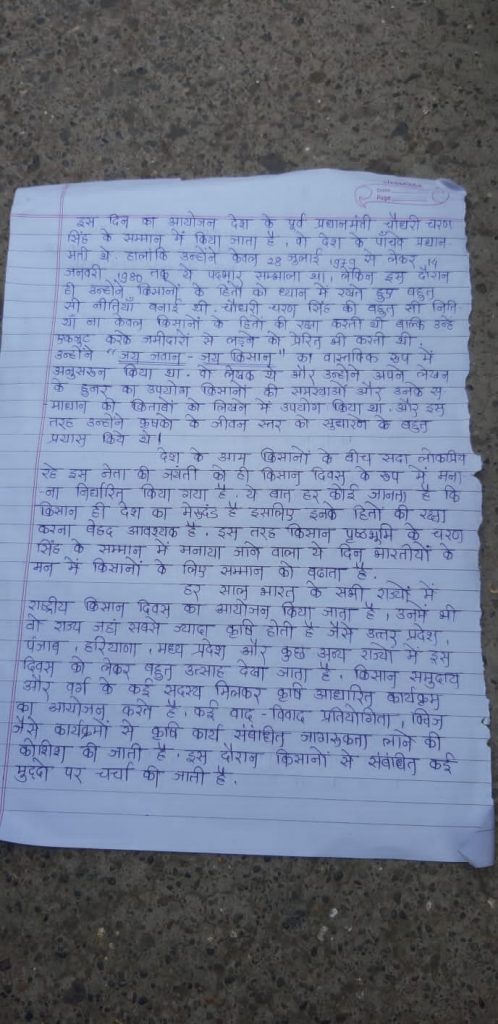 Page
इस दिन का आयोजन देश के पूर्व प्रधानमंत्री चौधरी चरण
सिंह के सम्मान में किया जाता है, वो देश के पाँचवे प्रधान
मंत्री थे. हालांकि उन्होंने केवल 28 जुलाई 1979 से लेकर 14
जनवरी 1980 तक ये पदभार सम्भाला था, लेकिन इस दौरान
ही उन्होंने किसानों के हितों को ध्यान में रखते हुए बहुत
सी नीतियाँ बनाई थी. चौधरी चरण सिंह की बहुत सी निति
याँ ना केवल किसानों के हितों की रक्षा करती थी बल्कि उन्हे
एकजुट करके जमीदारों से लड़ने को प्रेरित भी करती थी.
उन्होंने "जय जवान - जय किसान" का वास्तविक रूप में
अनुसरून किया था. वो लेखक थे और उन्होंने अपने लेखन
के हुनर का उपयोग किसानों की समस्याओं और उनके स
माधान को किताबों को लिखने में उपयोग किया था. और इस
तरह उन्होंने कृषको के जीवन स्तर को सुधारण के बहुत
प्रयास किये थे।
देश के आम किसानों के बीच सदा लोकप्रिय
रहे इस नेता की जयंती को ही किसान दिवस के रूप में मना
-ना निर्धारित किया गया है. ये बात हर कोई जानता है कि
किसान ही देश का मेरूदंड है इसलिए इनके हितों की रक्षा
करना बेहद आवश्यक है. इस तरह किसान पृष्ठभूमि के चरण
सिंह के सम्मान में मनाया जाने वाला ये दिन भारतीयों के
मन में किसानों के लिए सम्मान को बढाता है.
हर साल भारत के सभी राज्यों में
राष्ट्रीय किसान दिवस का आयोजन किया जाता है, उनमें भी
वो राज्य जहां सबसे ज्यादा कृषि होती है जैसे उत्तर प्रदेश,
पंजाब, हरियाणा, मध्य प्रदेश और कुछ अन्य राज्यों में इस
दिवस को लेकर बहुत उत्साह देखा जाता है. किसान समुदाय
और वर्ग के कई सदस्य मिलकर कृषि आधारित कार्यक्रम
का आयोजन करते है. कई वाद-विवाद प्रतियोगिता, क्विज
जैसे कार्यक्रमों से कृषि कार्य संबंधित जागरूकता लाने की
कोशिश की जाती है. इस दौरान किसानों से संबंधित कई
मुद्दो पर चर्चा की जाती है.